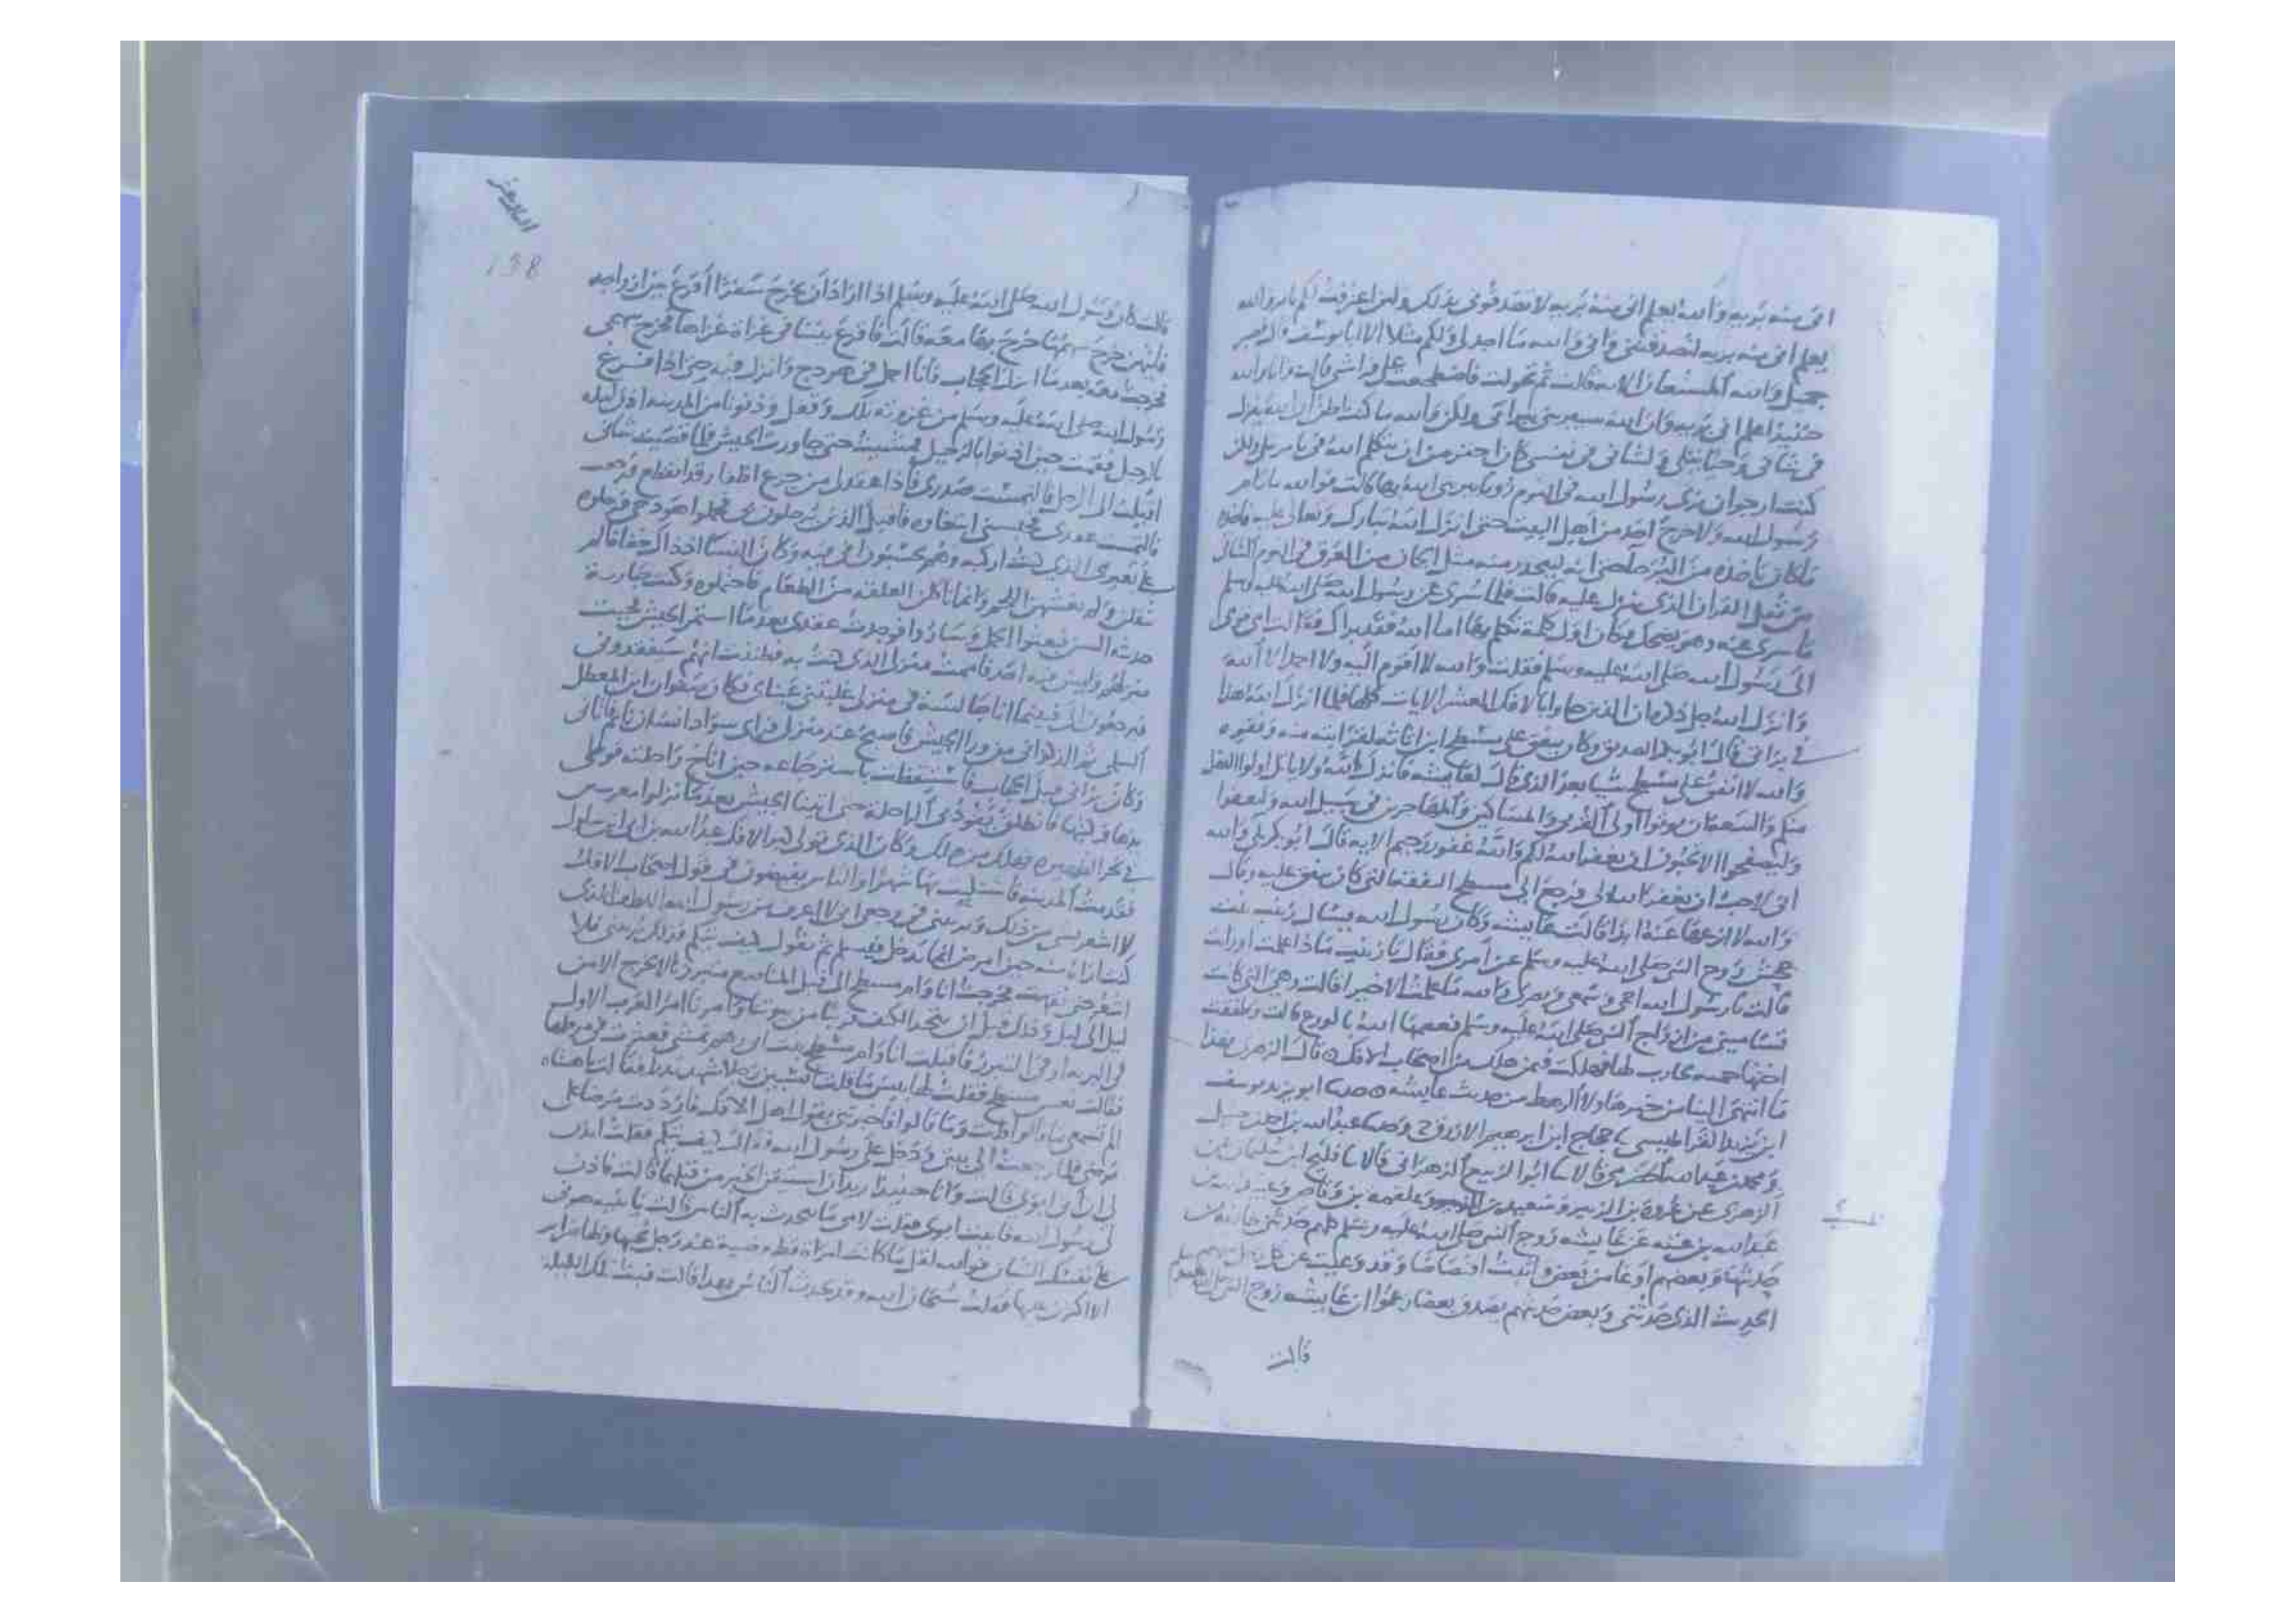 انى منه بريه والله يعلم انى منه بريه لا تصدقونى بذلك ولين اعترفت لكم بامر والله
يعلم انى منه بريه لتصدقننى وانى والله ما اجد لى ولكم مثلا الا ابا يوسف قال فصبر
جميل والله المستعان الايه قالت ثم تحولت فاضطجعت على فراشى قالت وانا والله
حنيذ اعلم انى بريه وان الله سيبرينى ببراتى ولكن والله ما كنت اظن ان الله ينزل
فى شانى وحيا يتلى ولشانى فى نفسى كان احقر من ان يتكلم الله فى بامر يتلى ولكن
كنت ارجوا ان يرى رسول الله فى النوم رويا يبرينى الله بها قالت فوالله ما رام
رسول الله ولا خرج احد من اهل البيت حتى انزل الله تبارك وتعالى عليه فاخذه
ما كان ياخذه من البرحا حتى انه ليتحدر منه مثل الجمان من العرق فى اليوم الشاتى
من ثقل القران الذى ينزل عليه قالت فلما سرى عن رسول الله صلى الله عليه وسلم
ما سرى عنه وهو يضحك وكان اول كلمة تكلم بها اما الله فقد براك فقالت امى قومى
الى رسول الله صلى الله عليه وسلم فقلت والله لا اقوم اليه ولا احمد الا الله
وانزل الله جل ذكره ان الذين جاوا بالافك العشر الايات كلها فلما انزل الله هذا
فى براتى قال ابو بكر الصديق وكان ينفق على مسطح ابن اثاثه لقرابته منه وفقره
والله لا انفق على مسطح شيا بعد الذى قال لعايشه فانزل الله ولا ياتل اولوا الفضل
منكم والسعه ان يوتوا اولى القربى والمساكين والمهاجرين فى سبيل الله وليعفوا
وليصفحوا الا تحبون ان يغفر الله لكم والله غفور رحيم الايه قال ابو بكر بلى والله
انى لاحب ان يغفر الله لى فرجع الى مسطح النفقه التى كان ينفق عليه وقال
والله لا انزعها عنه ابدا قالت عايشه وكان رسول الله يسال زينب بنت
جحش زوج النبى صلى الله عليه وسلم عن امرى فقال يا زينب ماذا علمت او رات
قالت يا رسول الله احمى سمعى وبصرى والله ما علمت الا خيرا قالت وهى التى كانت
تسامينى من ازواج النبى صلى الله عليه وسلم فعصمها الله بالورع قالت وطفقت
اختها حمنه تحارب لها فهلكت فيمن هلك من اصحاب الافك قال الزهرى فهذا
ما انتهى الينا من خبر هاولا الرهط من حديث عايشه حدثنا ابو يزيد يوسف
ابن يزيد القراطيسى نا حجاج ابن ابرهيم الازرق ح وحدثنا عبدالله بن احمد بن حنبل
ومحمد بن عبدالله الحضرمى قالا نا ابوا الربيع الزهرانى قالا نا فليح ابن سليمان عن
الزهرى عن عروة بن الزبير وسعيد بن المسيب وعلقمه بن وقاص وعبيدالله بن
عبدالله بن عتبه عن عايشه زوج النبى صلى الله عليه وسلم كلهم حدثنى طايفه من
حديثها وبعضهم اوعا من بعض واثبت اقتصاصا وقد وعيت عن كل رجل منهم
الحديث الذى حدثنى وبعض حديثهم يصدق بعضا زعموا ان عايشه زوج النبى
قالت
138
قالت كان رسول الله صلى الله عليه وسلم اذا اراد ان يخرج سفرا اقرع بين ازواجه
فايتهن خرج سهمها خرج بها معه قالت فاقرع بيننا فى غزاة غزاها فخرج سهمى
فخرجت معه بعدما انزل الحجاب فانا احمل فى هودج وانزل فيه حتى اذا فرغ
رسول الله صلى الله عليه وسلم من غزوته تلك وقفل ودنونا من المدينه اذن ليله
بالرحيل فقمت حين اذنوا بالرحيل فمشيت حتى جاوزت الجيش فلما قضيت شانى
اقبلت الى الرحل فالتمست صدرى فاذا عقدلى من جزع اظفار قد انقطع فرجعت
فالتمست عقدى فحبسنى ابتغاوه فاقبل الذين يرحلون بى فحملوا هودجى فرحلوه
على بعيرى الذى كنت اركبه وهم يحسبون انى فيه وكان النسا اذ ذاك خفافا لم
يثقلن ولم يغشهن اللحم وانما ياكلن العلقه من الطعام فاحتملوه وكنت جارية
حديثه السن فبعثوا الجمل وساروا فوجدت عقدى بعدما استمر الجيش فجيت
منزلهم وليس فيه احد فاممت منزلى الذى كنت به فظننت انهم سيفقدونى
فيرجعون الى فبينما انا جالسة فى منزلى غلبتنى عيناى وكان صفوان ابن المعطل
السلمى ثم الذكوانى من ورا الجيش فاصبح عند منزلى فراى سواد انسان نايم فاتانى
وكان يرانى قبل الحجاب فاستيقظت باسترجاعه حين اناخ راحلته فوطى
يدها فركبتها فانطلق يقود بى الراحله حتى اتينا الجيش بعدما نزلوا معرسين
فى نحر الظهيره فهلك من هلك وكان الذى تولى كبر الافك عبدالله بن ابى ابن سلول
فقدمت المدينه فاشتكيت بها شهرا والناس يفيضون فى قول اصحاب الافك
لا اشعر بشى من ذلك ويريبنى فى وجعى انى لا اعرف من رسول الله اللطف الذى
كنت اراه منه حين امرض انما يدخل فيسلم ثم يقول كيف تيكم فذلك يريبنى فلا
اشعر حتى نقهت فخرجت انا وام مسطح الى قبل المناصع متبرزنا لا نخرج الا من
ليل الى ليل وذلك قبل ان نتخذ الكنف قريبا من بيوتنا وامرنا امر العرب الاول
فى البريه او فى التبرز فاقبلت انا وام مسطح بنت ابى رهم نمشى فعثرت فى مرطها
فقالت تعس مسطح فقلت لها بيس ما قلت اتسبين رجلا شهد بدرا فقالت يا هنتاه
الم تسمعى ما قالوا قلت وما قالوا فاخبرتنى بقول اهل الافك فازددت مرضا على
مرضى فلما رجعت الى بيتى ودخل على رسول الله فقال كيف تيكم فقلت ايذن
لى ان اتى ابوى قالت وانا حنيذ اريد ان استيقن الخبر من قبلهما قالت فاذن
لى رسول الله فاتيت ابوى فقلت لامى ما يتحدث به الناس قالت يا بنيه هونى
على نفسك الشان فوالله لقل ما كانت امراة قط وضية عند رجل يحبها ولها ضراير
الا اكثرن عليها فقلت سبحان الله وقد تحدث الناس بهذا قالت فبت تلك الليلة